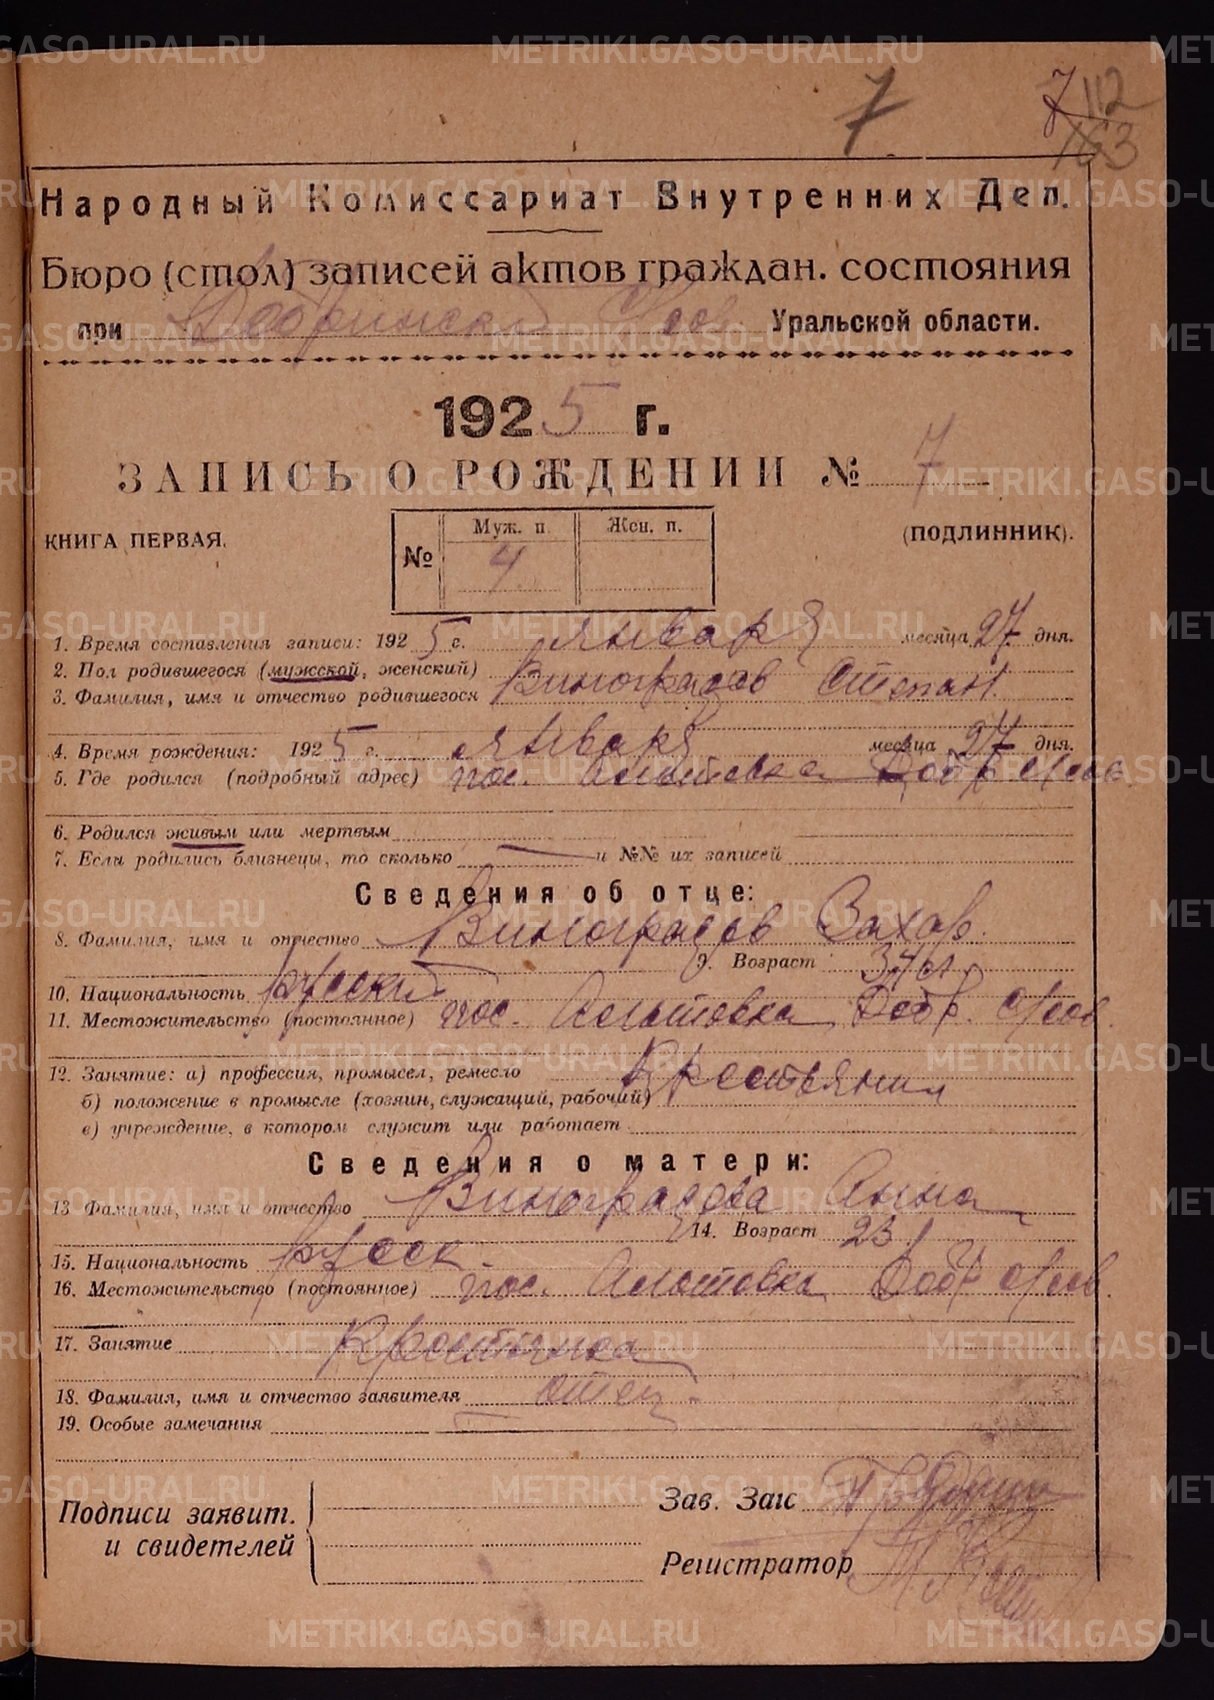 7
7 112
163
Народный Комиссариат Внутренних Дел.
Бюро (стол) записей актов граждан. состояния
при Добринском Уральской области.
1925 г.
ЗАПИСЬ О РОЖДЕНИИ № 7
КНИГА ПЕРВАЯ.
№ Муж. п. Жен. п.
4
(ПОДЛИННИК).
1. Время составления записи: 1925 г. января месяца 27 дня.
2. Пол родившегося (мужской, женский)
3. Фамилия, имя и отчество родившегося Виноградов Степан
4. Время рождения: 1925 г. января месяца 27 дня.
5. Где родился (подробный адрес) пос.
6. Родился живым или мертвым
7. Если родились близнецы, то сколько — и №№ их записей
Сведения об отце:
8. Фамилия, имя и отчество Виноградов Захар.
9. Возраст 34 л.
10. Национальность Русский
11. Местожительство (постоянное) пос.
12. Занятие: а) профессия, промысел, ремесло Крестьянин
б) положение в промысле (хозяин, служащий, рабочий)
в) учреждение, в котором служит или работает
Сведения о матери:
13 Фамилия, имя и отчество Виноградова Анна
14. Возраст 23
15. Национальность Русск.
16. Местожительство (постоянное) пос.
17. Занятие Крестьянка
18. Фамилия, имя и отчество заявителя отец
19. Особые замечания —
Подписи заявит.
и свидетелей
Зав. Загс
Регистратор
METRIKI.GASO-URAL.RU